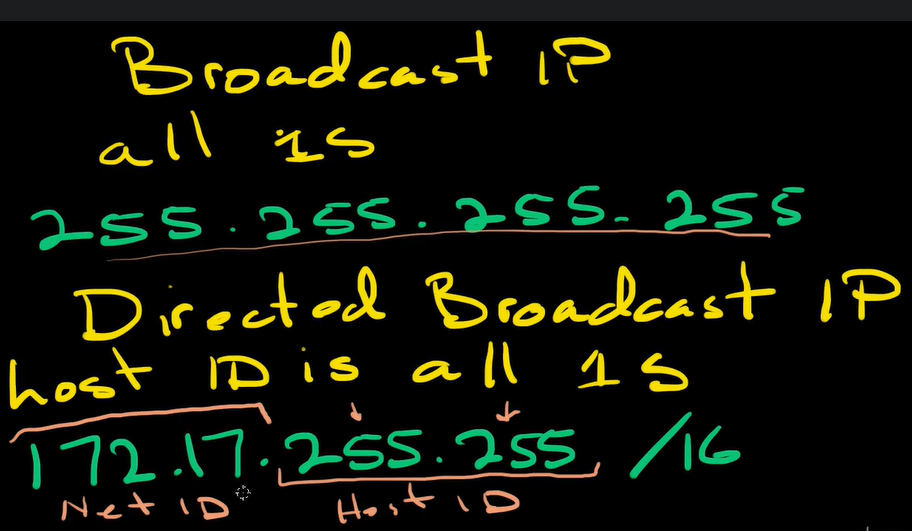 Broadcast IP
all 1s
255.255.255.255
Directed Broadcast IP
host ID is all 1s
172.17.255.255 /16
Net ID Host ID